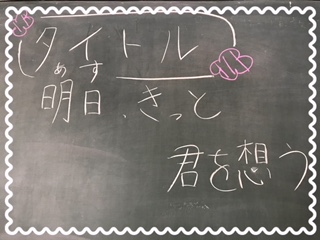 タイトル
あす
明日、きっと
君を想う